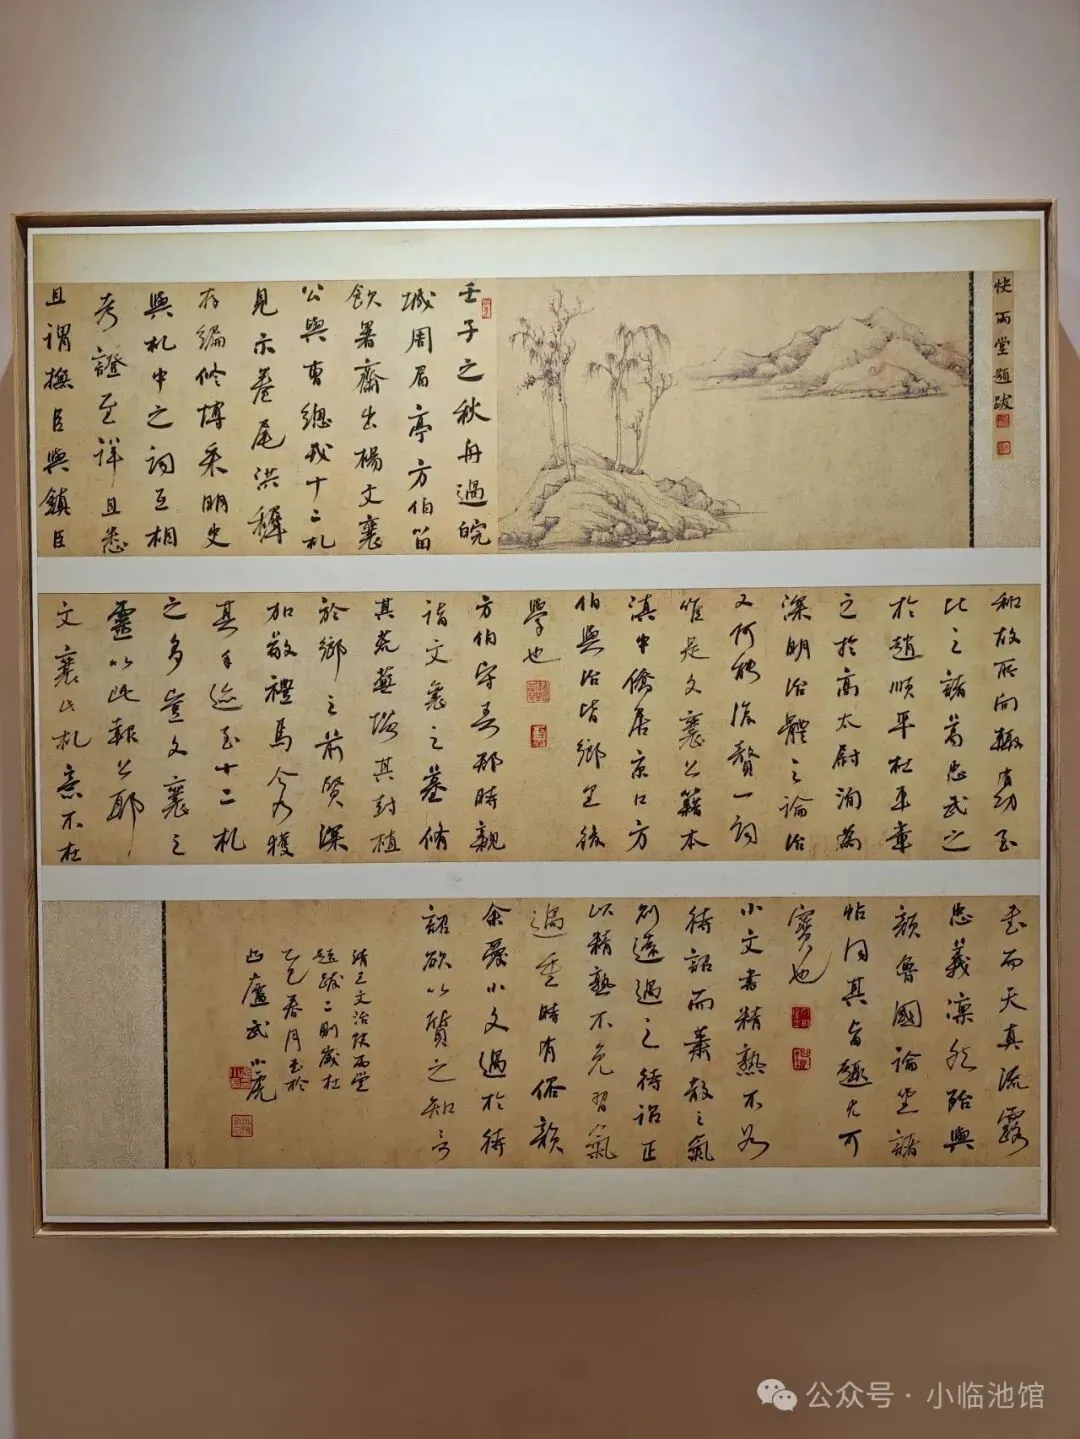 快雨堂題跋
壬子之秋舟過皖
城周眉亭方伯笛
飲署齋出楊文襄
公與曹總戎十二札
見示卷尾洪穉
存編修博采明史
與札中之詞互相
考證至詳且悉
且謂撫臣與鎮臣
和故所向輒有功至
比之諸葛忠武之
於趙順平杜平章
之於高太尉洵為
深明治體之論治
又何能復贅一詞
惟是文襄公籍本
滇中僑居京口方
伯與治皆鄉里後
學也
方伯守吾郡時親
詣文襄之墓脩
其荒蕪謹其封植
於鄉之前賢深
加敬禮焉今乃獲
其手迹至十二札
之多豈文襄之
靈以此報公耶
文襄此札意不在
書而天真流露
忠義凜然殆與
顏魯國論坐諸
帖同其旨趣尤可
寶也
小文書精熟不及
待詔而蕭散之氣
則遠過之待詔正
以精熟不免習氣
過重時有俗韻
余愛小文過於待
詔欲以質之知言
清王文治快雨堂
題跋二則歲在
乙巳春月書於
山廬武小虎
公众号·小临池馆